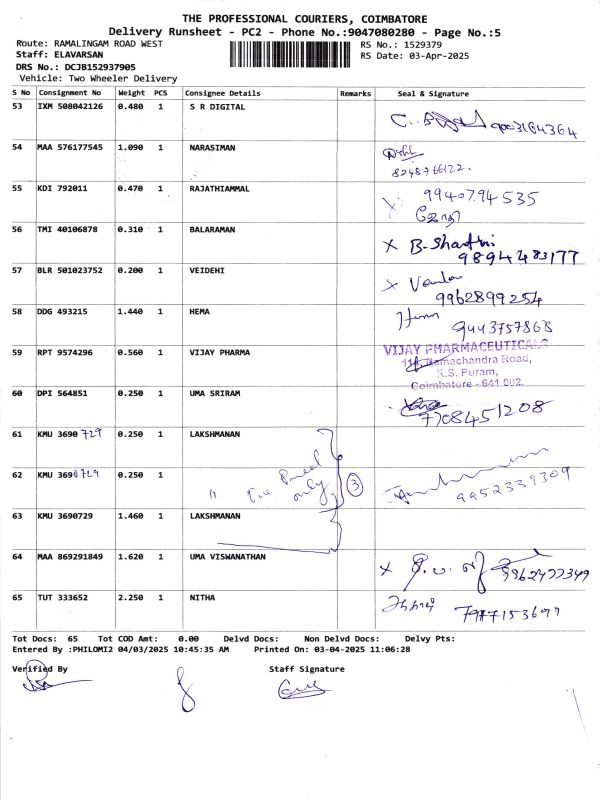 THE PROFESSIONAL COURIERS, COIMBATORE
Delivery Runsheet - PC2 - Phone No.:9047080280 - Page No.:5
Route: RAMALINGAM ROAD WEST RS No.: 1529379
Staff: ELAVARSAN RS Date: 03-Apr-2025
DRS No.: DCJB152937905
Vehicle: Two Wheeler Delivery
S No Consignment No Weight PCS Consignee Details Remarks Seal & Signature
53 IXM 508042126 0.480 1 S R DIGITAL
54 MAA 576177545 1.090 1 NARASIMAN
8248766122.
55 KDI 792011 0.470 1 RAJATHIAMMAL 9940794535
56 TMI 40106878 0.310 1 BALARAMAN X B-Shanthi
9894483177
57 BLR 501023752 0.200 1 VEIDEHI X
9962899254
58 DDG 493215 1.440 1 HEMA
9443757868
59 RPT 9574296 0.560 1 VIJAY PHARMA VIJAY PHARMACEUTICALS
Ramachandra Road,
R.S. Puram,
Coimbatore - 641 002.
60 DPI 564851 0.250 1 UMA SRIRAM 7708451208
61 KMU 3690729 0.250 1 LAKSHMANAN
62 KMU 3690729 0.250 1 " only 3
9952339309
63 KMU 3690729 1.460 1 LAKSHMANAN
64 MAA 869291849 1.620 1 UMA VISWANATHAN X
65 TUT 333652 2.250 1 NITHA
Tot Docs: 65 Tot COD Amt: 0.00 Delvd Docs: Non Delvd Docs: Delvy Pts:
Entered By :PHILOMI2 04/03/2025 10:45:35 AM Printed On: 03-04-2025 11:06:28
Verified By Staff Signature